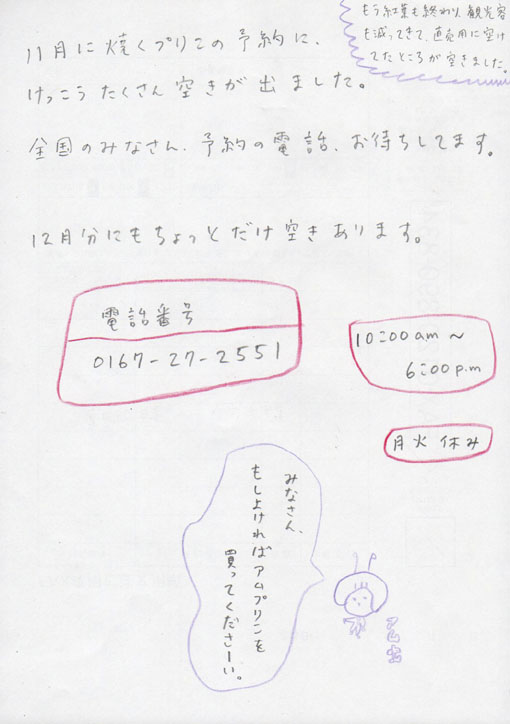 もう紅葉も終わり、観光客
も減ってきて、直売用に空け
てたところが空きました。
11月に焼くプリンの予約に、
けっこうたくさん空きが出ました。
全国のみなさん、予約の電話、お待ちしてます。
12月分にもちょっとだけ空きあります。
電話番号
0167-27-2551
10:00am〜
6:00p.m
月火休み
みなさん、
もしよければアムプリンを
買ってくださーい。